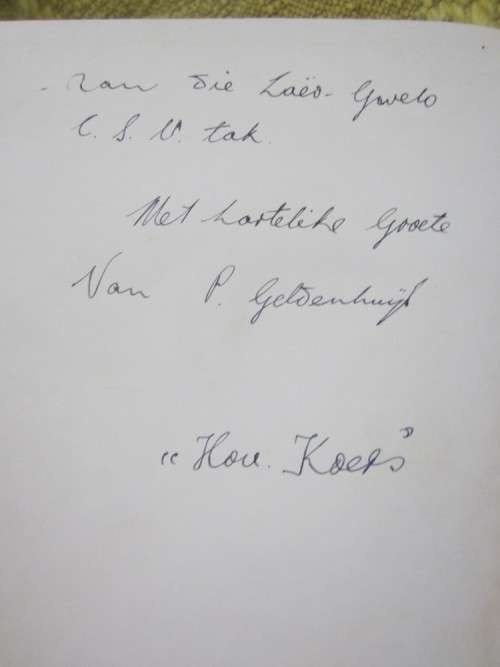 - Van die Laër- Gwelo
C. S. V. tak.
Met hartelike Groete
Van P. Geldenhuijs
"Hou Koers"